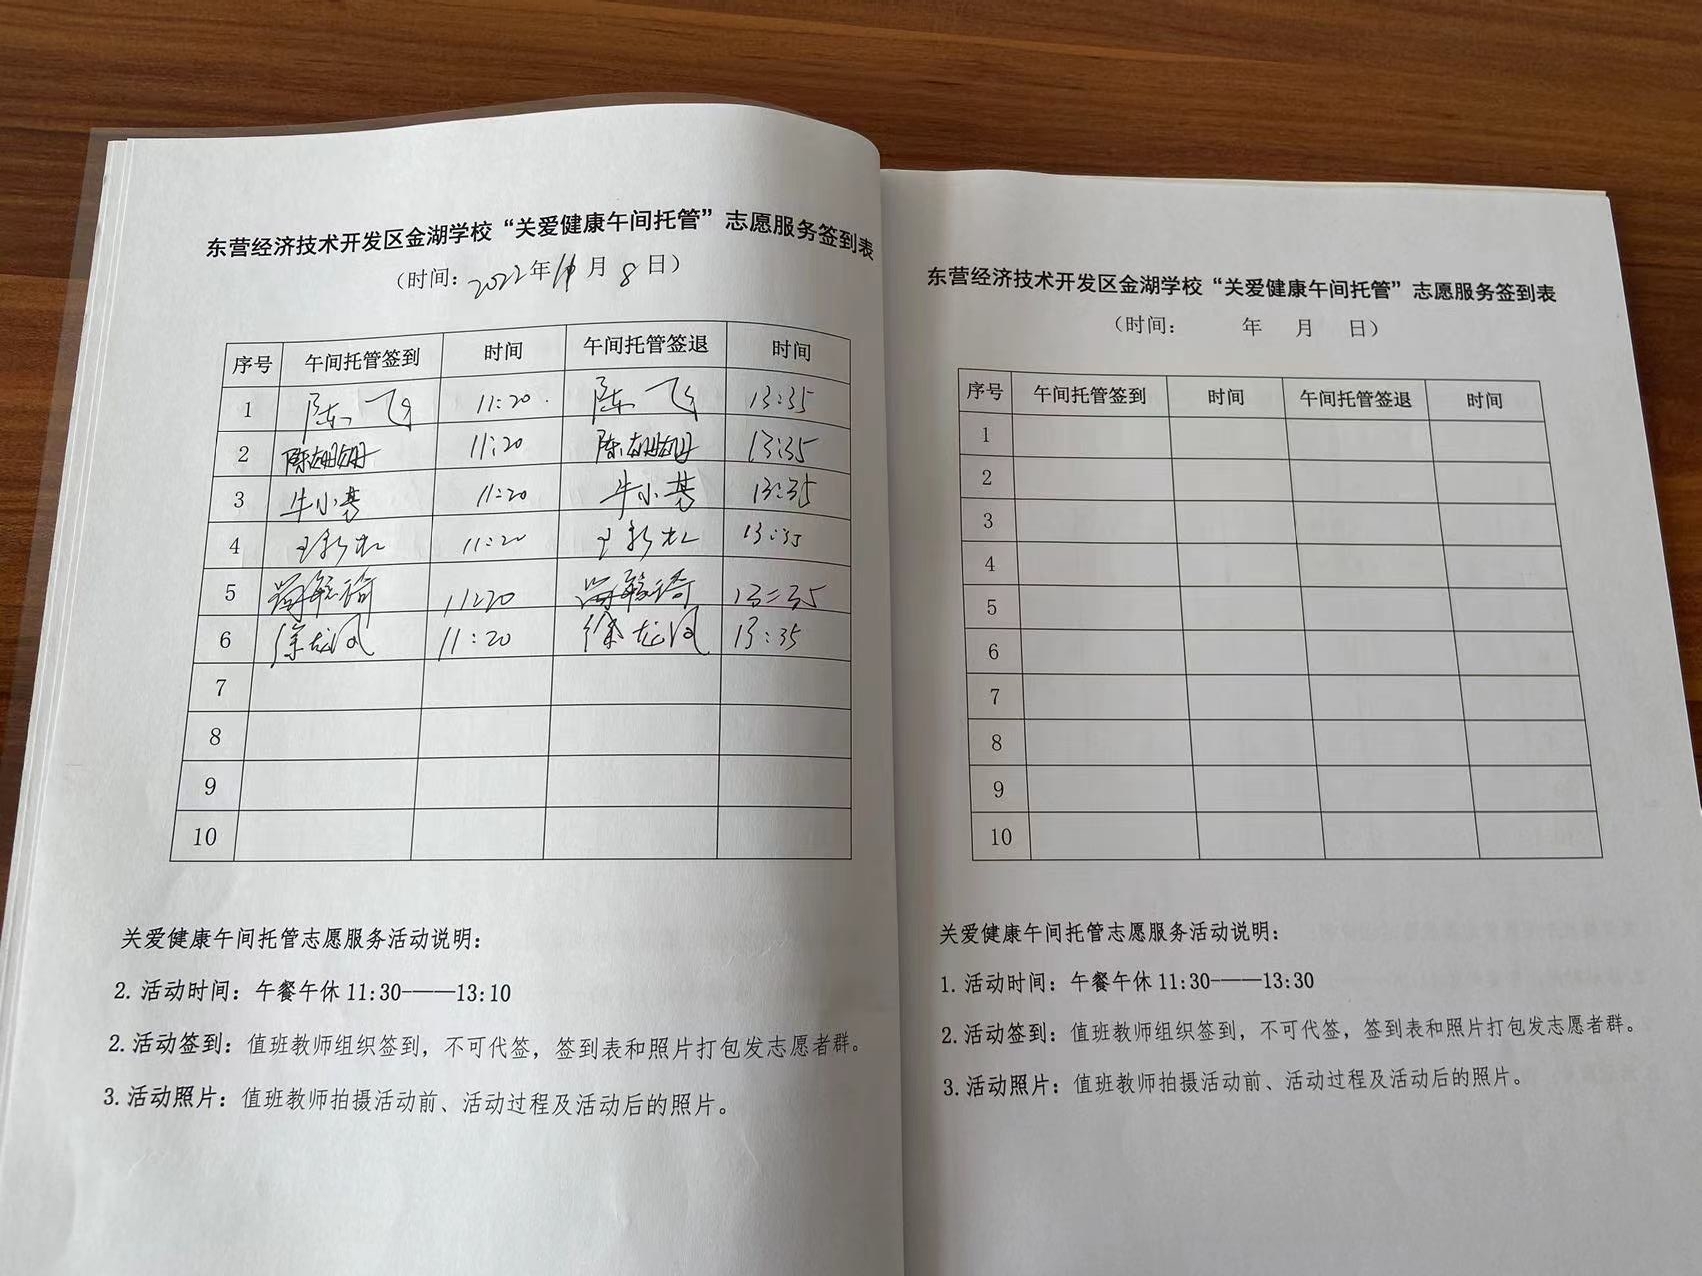 东营经济技术开发区金湖学校“关爱健康午间托管”志愿服务签到表
（时间：2022年11月8日）
序号 午间托管签到 时间 午间托管签退 时间
1 陈飞 11:20 陈飞 13:35
2 陈姗姗 11:20 陈姗姗 13:35
3 牛小慧 11:20 牛小慧 13:35
4 11:20 13:35
5 11:20 13:35
6 徐龙凤 11:20 徐龙凤 13:35
7
8
9
10
关爱健康午间托管志愿服务活动说明：
2. 活动时间：午餐午休11:30-——13:10
2. 活动签到：值班教师组织签到，不可代签，签到表和照片打包发志愿者群。
3. 活动照片：值班教师拍摄活动前、活动过程及活动后的照片。
东营经济技术开发区金湖学校“关爱健康午间托管”志愿服务签到表
（时间： 年 月 日）
序号 午间托管签到 时间 午间托管签退 时间
1
2
3
4
5
6
7
8
9
10
关爱健康午间托管志愿服务活动说明：
1. 活动时间：午餐午休11:30-——13:30
2. 活动签到：值班教师组织签到，不可代签，签到表和照片打包发志愿者群。
3. 活动照片：值班教师拍摄活动前、活动过程及活动后的照片。